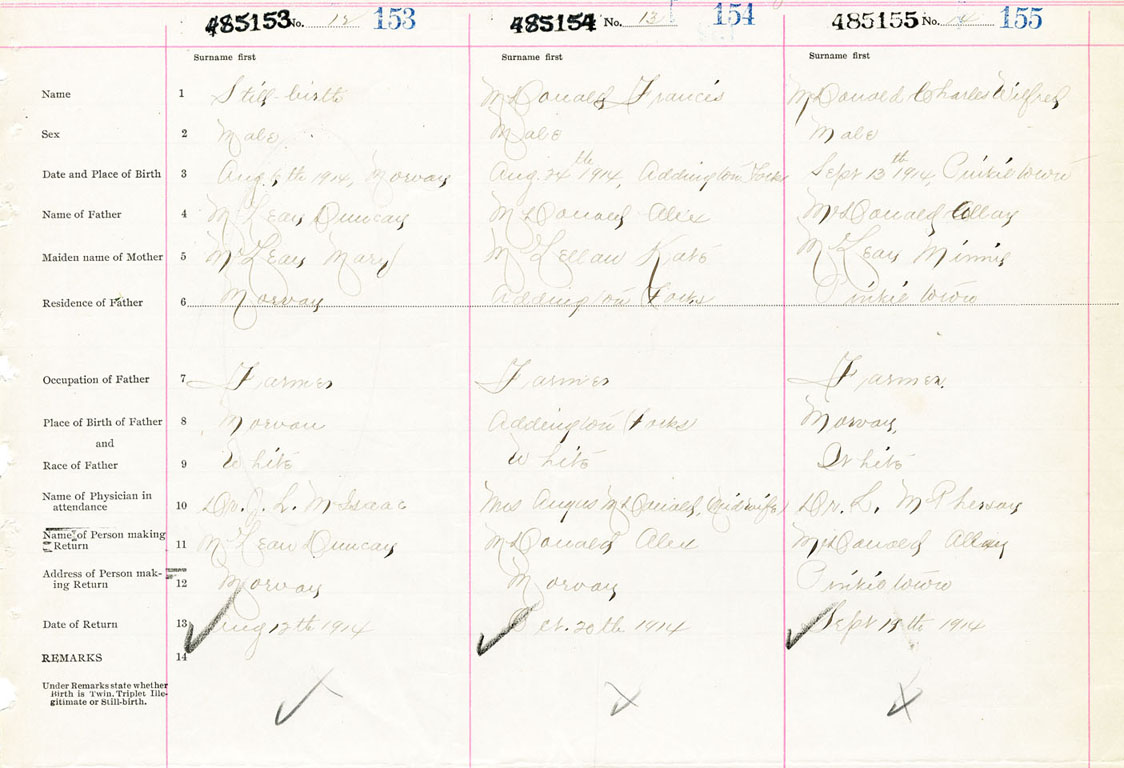 485153 No. 12 153 485154 No. 13 154 485155 No. 155
Surname first Surname first Surname first
Name 1 Still-birth McDonald Francis McDonald Charles Wilfred
Sex 2 Male Male Male
Date and Place of Birth 3 Aug. 6th 1914, Morvan Aug. 24th 1914, Addington Forks Sept 13th 1914, Pinkietown
Name of Father 4 McLean Duncan McDonald Alex McDonald Allan
Maiden name of Mother 5 McLean Mary McLellan Kate McLean Minnie
Residence of Father 6 Morvan Addington Forks Pinkietown
Occupation of Father 7 Farmer Farmer Farmer.
Place of Birth of Father 8 Morvan Addington Forks Morvan
and
Race of Father 9 White White White
Name of Physician in
attendance 10 Dr. J. L. McIsaac Mrs Angus McDonald, (midwife) Dr. L. McPherson
Name of Person making
Return 11 McLean Duncan McDonald Alex McDonald Allan
Address of Person mak-
ing Return 12 Morvan Morvan Pinkietown
Date of Return 13 Aug 12th 1914 Oct. 20th 1914 Sept 19th 1914
REMARKS 14
Under Remarks state whether
Birth is Twin. Triplet Ille-
gitimate or Still-birth.